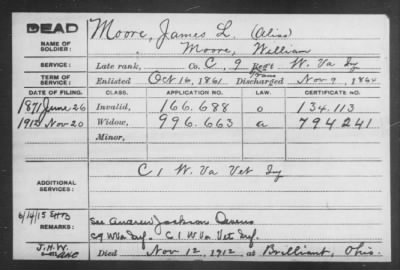 DEAD
NAME OF SOLDIER:
Moore, James L. (Alias)
Moore, William
SERVICE:
Late rank, Co. C, 9 Regt W. Va Inf
TERM OF SERVICE:
Enlisted Oct 16, 1861 Trans Discharged Nov 9, 1864
DATE OF FILING. CLASS. APPLICATION NO. LAW. CERTIFICATE NO.
1871 June 26 Invalid, 166.688 0 134.113
1912 Nov 20 Widow, 996.663 a 794241
Minor,
ADDITIONAL SERVICES:
C 1 W. Va Vet Inf
REMARKS:
See Andrew Jackson
C 9 W Va Inf. C 1 W Va Vet Inf.
J.H.W.
Died Nov 12, 1912, at Brilliant, Ohio.